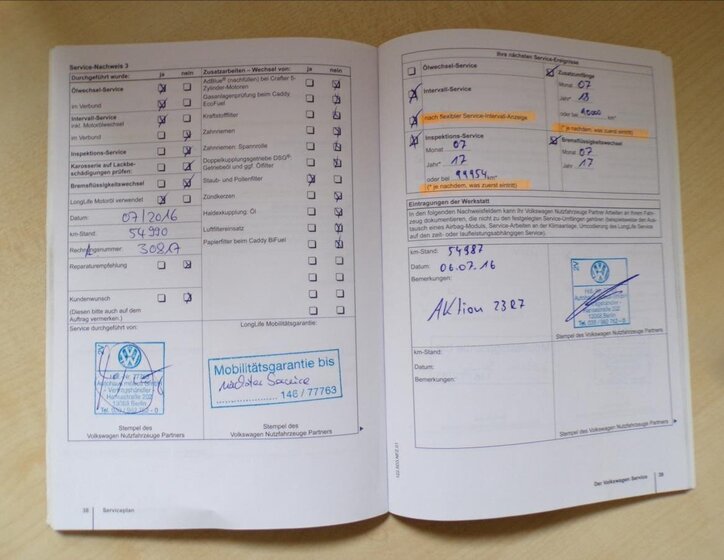 Service-Nachweis 3
Durchgeführt wurde: ja nein
Ölwechsel-Service
im Verbund
Intervall-Service
inkl. Motorölwechsel
im Verbund
Inspektions-Service
Karosserie auf Lackbe-
schädigungen prüfen:
Bremsflüssigkeitswechsel
LongLife Motoröl verwendet
Datum: 07/2016
km-Stand: 54990
Rechnungsnummer: 30817
Reparaturempfehlung
Kundenwunsch
(Diesen bitte auch auf dem
Auftrag vermerken.)
Service durchgeführt von:
2V
- Vertragshändler -
Hansastraße 202
13088 Berlin
Stempel des
Volkswagen Nutzfahrzeuge Partners
38 Serviceplan
Zusatzarbeiten – Wechsel von: ja nein
AdBlue® (nachfüllen) bei Crafter 5-
Zylinder-Motoren
Gasanlagenprüfung beim Caddy
EcoFuel
Kraftstofffilter
Zahnriemen
Zahnriemen: Spannrolle
Doppelkupplungsgetriebe DSG®:
Getriebeöl und ggf. Ölfilter
Staub- und Pollenfilter
Zündkerzen
Haldexkupplung: Öl
Luftfiltereinsatz
Papierfilter beim Caddy BiFuel
LongLife Mobilitätsgarantie:
Mobilitätsgarantie bis
nächster Service
146 / 77763
Stempel des
Volkswagen Nutzfahrzeuge Partners
Ihre nächsten Service-Ereignisse
Ölwechsel-Service
Intervall-Service
nach flexibler Service-Intervall-Anzeige
Zusatzumfänge
Monat 07
Jahr* 18
oder bei km*
(* je nachdem, was zuerst eintritt)
Inspektions-Service
Monat 07
Jahr* 17
oder bei 99954 km*
(* je nachdem, was zuerst eintritt)
Bremsflüssigkeitswechsel
Monat 07
Jahr 17
Eintragungen der Werkstatt
In den folgenden Nachweisfeldern kann Ihr Volkswagen Nutzfahrzeuge Partner Arbeiten an Ihrem Fahr-
zeug dokumentieren, die nicht zu den festgelegten Service-Umfängen gehören (beispielsweise den Aus-
tausch eines Airbag-Moduls, Service-Arbeiten an der Klimaanlage, Umcodierung des LongLife Service
auf den zeit- oder laufleistungsabhängigen Service).
km-Stand: 54987
Datum: 06.07.16
Bemerkungen:
Aktion 23R7
2V
Hansastraße 202
13088 Berlin
Stempel des
Volkswagen Nutzfahrzeuge Partners
km-Stand:
Datum:
Bemerkungen:
Stempel des
Volkswagen Nutzfahrzeuge Partners
Der Volkswagen Service 39